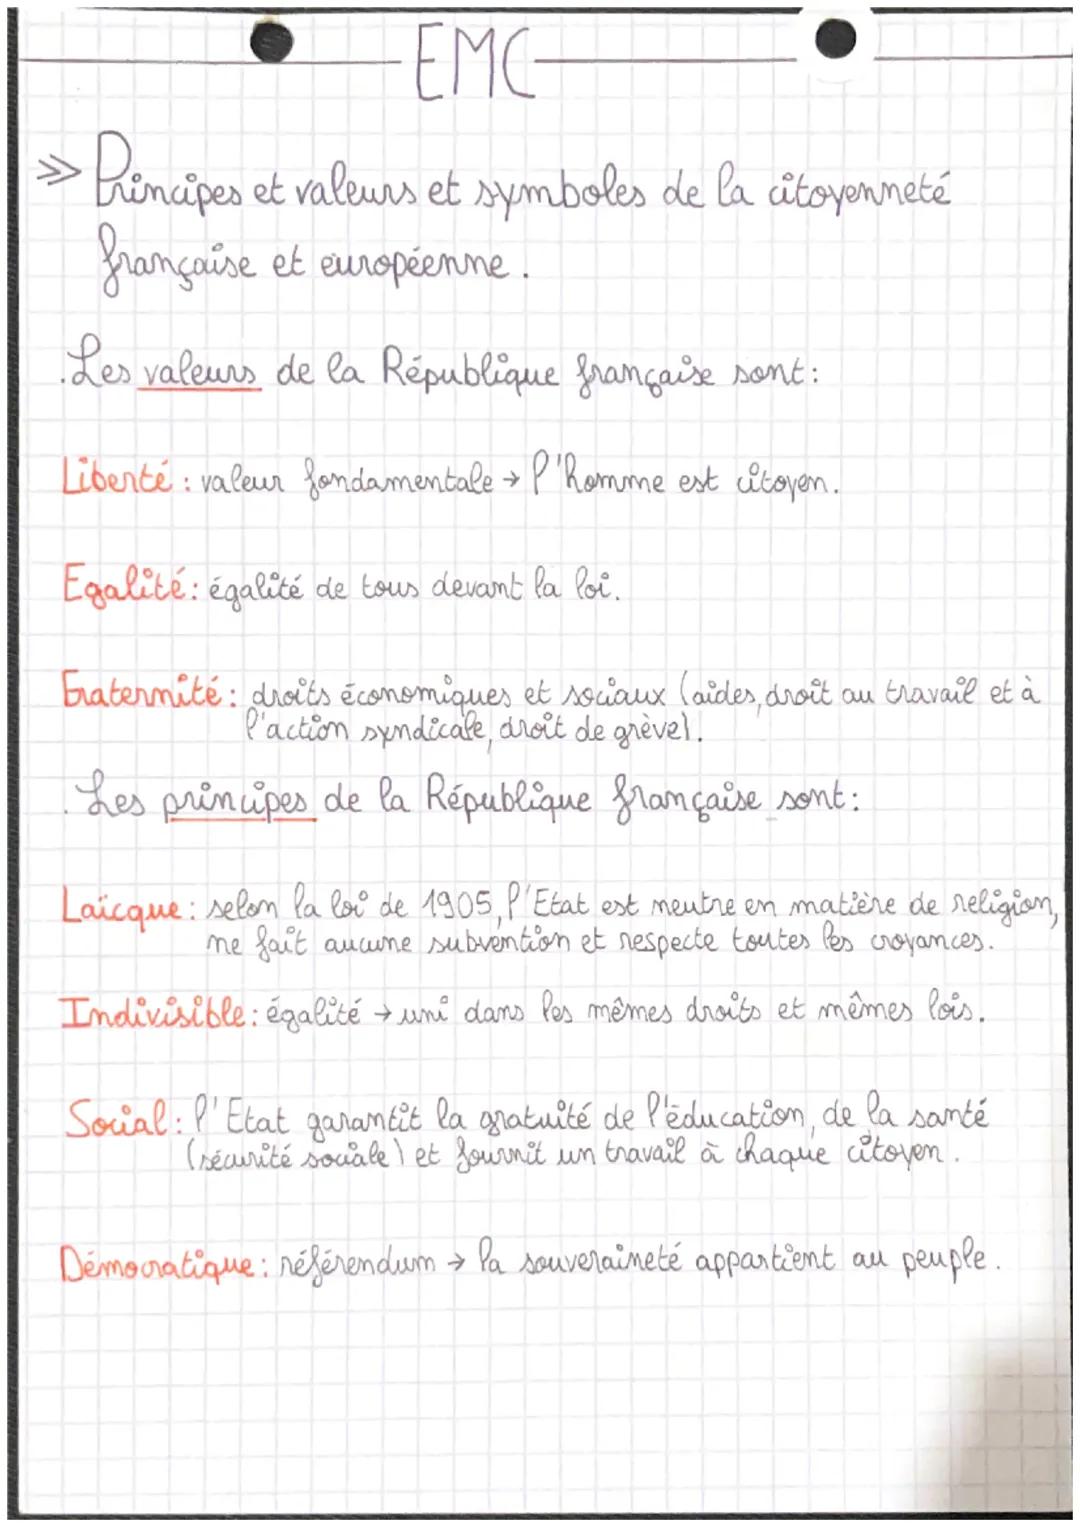 EMC
>> Principes et valeurs et symboles de la citoyenneté
française et européenne.
.Les valeurs de la République française sont:
Liberté : valeur fondamentale → l'homme est citoyen.
Egalité: égalité de tous devant la loi.
Fraternité: droits économiques et sociaux (aides, droit au travail et à
l'action syndicale, droit de grève).
. Les principes de la République française sont:
Laïcque: selon la loi de 1905, l'Etat est neutre en matière de religion,
ne fait aucune subvention et respecte toutes les croyances.
Indivisible: égalité → uni dans les mêmes droits et mêmes lois.
Social: l'Etat garantit la gratuité de l'éducation, de la santé
(sécurité sociale) et fournit un travail à chaque citoyen.
Démocratique: référendum → la souveraineté appartient au peuple.